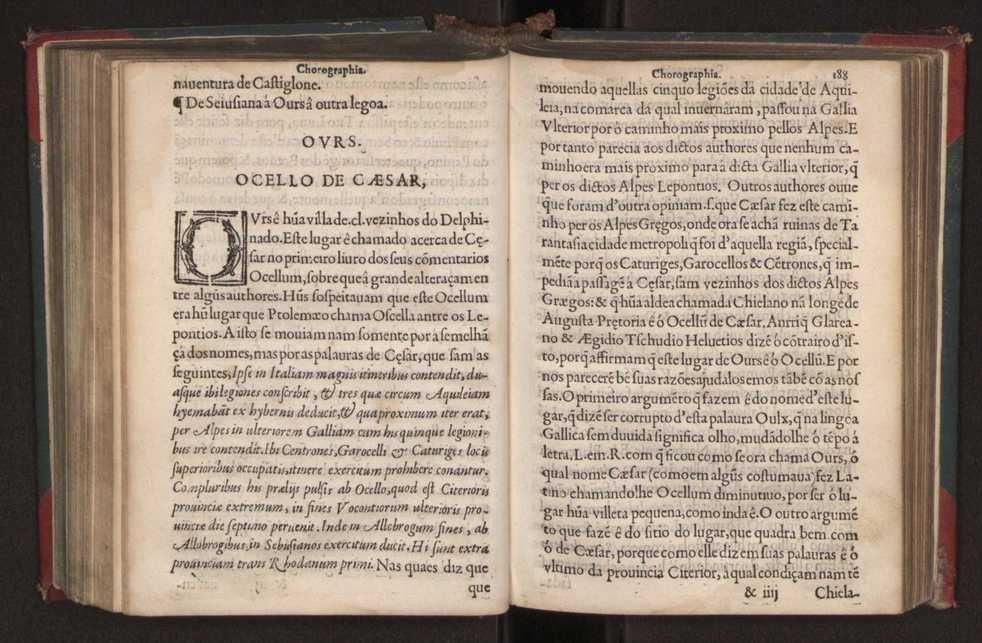 Chorographia.
nauentura de Castiglone.
¶ De Seiusiana à Oursâ outra legoa.
OVRS.
OCELLO DE CÆSAR,
OVrsê hũa villa de.cl.vezinhos do Delphi-
nado.Este lugar ê chamado acerca de Cę-
sar no primeiro liuro dos seus cõmentarios
Ocellum, sobre queâ grande alteraçam en
tre algũs authores.Hũs sospeitauam que este Ocellum
era hũ lugar que Ptolemæo chama Oscella antre os Le-
pontios. A isto se mouiam nam somente por a semelhã
çâ dos nomes, mas por as palauras de Cęsar, que sam as
seguintes, Ipse in Italiam magnis itineribus contendit, du-
asque ibi legiones conscribit, & tres quæ circum Aquileiam
hyemabãt ex hybernis deducit, & qua proximum iter erat,
per Alpes in ulteriorem Galliam cum his quinque legioni-
bus ire contendit. Ibi Centrones, Garocelli & Caturiges locis
superioribus occupatis, itinere exercitum prohibere conantur.
Compluribus his prælijs pulsis ab Ocello, quod est Citerioris
prouinciæ extremum, in fines Vocontiorum ulterioris pro-
uinciæ die septimo peruenit. Inde in Allobrogum fines, ab
Allobrogibus, in Sebusianos exercitum ducit. Hi sunt extra
prouinciam trans Rhodanum primi. Nas quaes diz que
que
Chorographia. 188
mouendo aquellas cinquo legiões da cidade de Aqui-
leia, na comarca da qual inuernâram, passou na Gallia
Vlterior por ô caminho mais proximo pellos Alpes. E
por tanto parecia aos dictos authores que nenhum ca-
minho era mais proximo para a dicta Gallia vlterior, q̃
per os dictos Alpes Lepontios, Outros authores ouue
que foram d'outra opiniam.s.que Cæsar fez este cami-
nho per os Alpes Gręgos, onde ora se achã ruinas de Ta
rantasia cidade metropoli q̃ foi d'aquella regiã, special-
mẽte porq̃ os Caturiges, Garocellos & Cẽtrones, q̃ im-
pediã a passagẽ â Cęsar, sam vezinhos dos dictos Alpes
Grægos: & q̃ hũa aldea chamada Chielano nã longe de
Augusta Prętoria é ô Ocellũ de Cæsar. Anrriq̃ Glarea-
no & Ægidio Tschudio Heluetios dizẽ ô cõtrairo d'is-
to, porq̃ affirmam q̃ este lugar de Oursê ô Ocellũ. E por
nos parecerẽ bẽ suas razões ajudalos emos tãbẽ cõ as nos
sas. O primeiro argumẽto q̃ fazem ê do nome d'este lu-
gar, q̃ dizẽ ser corrupto d'esta palaura Oulx, q̃ na lingoa
Gallica sem duuida significa olho, mudãdolhe ô tẽpo à
letra. L. em. R. com q̃ ficou como se ora chama Ours, ô
qual nome Cæsar (como em algũs costumaua) fez La-
tino chamandolhe Ocellum diminutiuo, por ser ô lu-
gar hũa villeta pequena, como inda ê. O outro argumẽ
to que fazẽ ê do sitio do lugar, que quadra bem com
ô de Cæsar, porque como elle diz em suas palauras ê ô
vltimo da prouincia Citerior, a qual condiçam nam tẽ
& iiij Chiela-